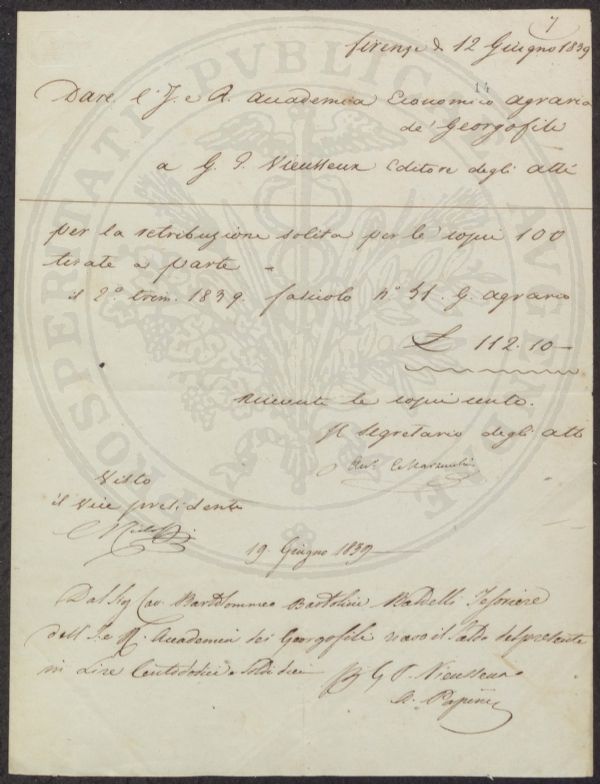 7
Firenze d 12 Giugno 1839
14
Dare l'I. e R. Accademia Economico agraria
de' Georgofili
a G. P. Vieusseux Editore degli atti
per la retribuzione solita per le copie 100
tirate a parte
il 2º trim. 1839. fascicolo nº 51. G. agrario
£ 112.10
ricevute le copie cento.
Il Segretario degli atti
Visto
il Vice presidente
19. Giugno 1839
Dal Sig Cav. Bartolommeo Bartolini Baldelli Tesoriere
dell' I. e R. Accademia dei Georgofili ricevo il saldo del presente
in Lire Centododici e Soldi dieci
G P. Vieusseux
A. Papini
PROSPERITATI PUBLICAE AUGENDAE